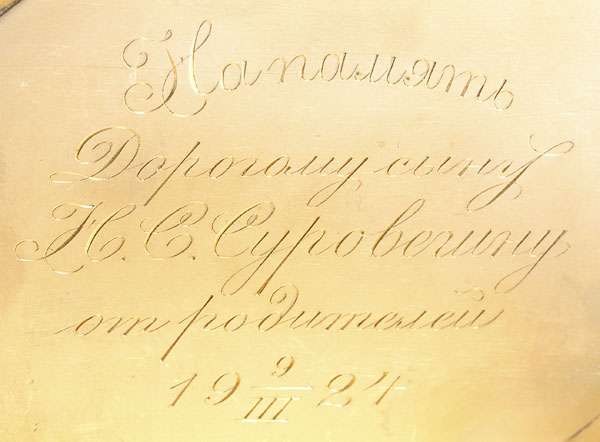 На память
Дорогому сыну
Н. С. Суровегину
от родителей
19 9/III 24